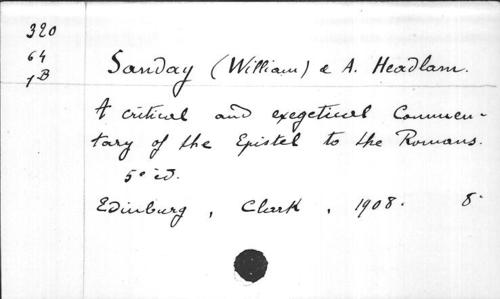 320
64
1B
Sanday (William) e A. Headlam.
A critical and exegetical Commen-
tary of the Epistel to the Romans.
5° ed.
Edinburg, Clark, 1908. 8°